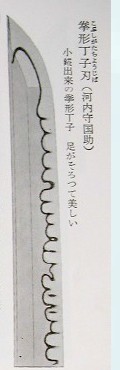 こぶしがたちょうじば
拳形丁子刃（河内守国助）
小錵出来の拳形丁子　足がそろつて美しい